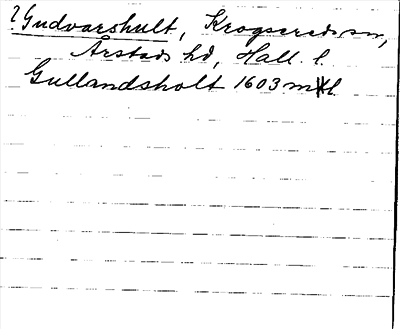 ? Gudvarshult, Krogsereds sn,
Årstads hd, Hall. l.
Gullandsholt 1603 mtl